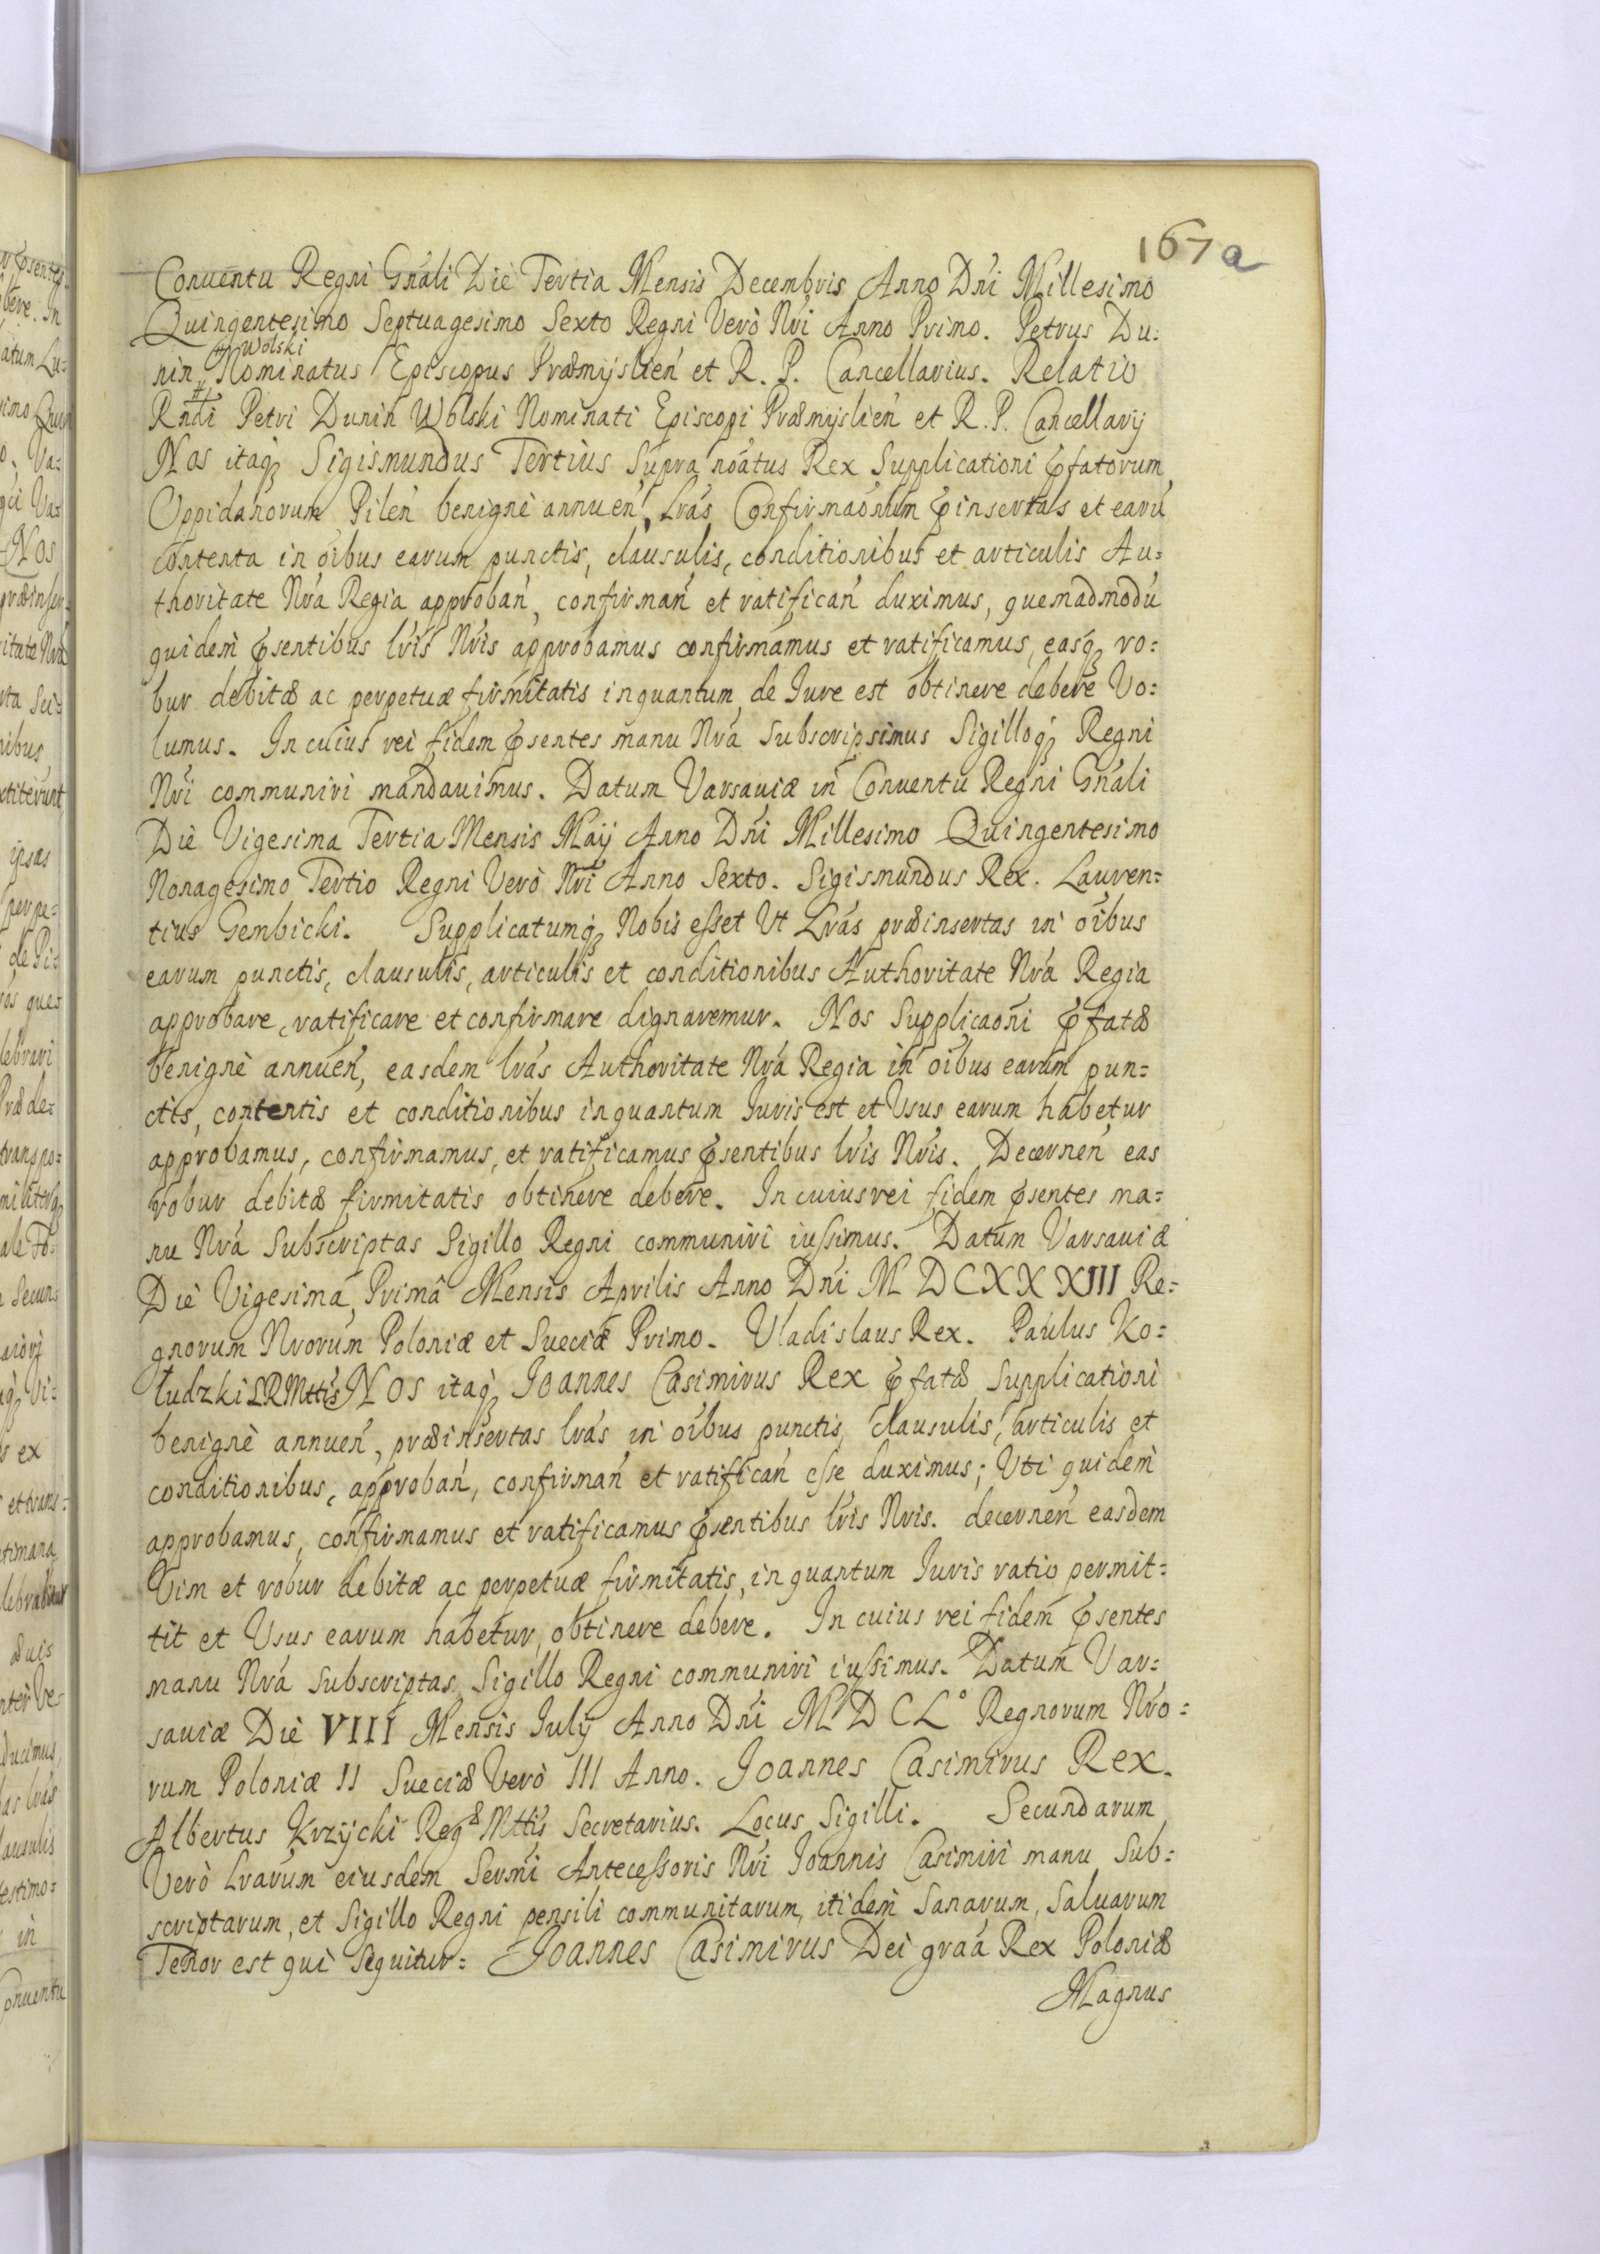 167a
Conventu Regni Gnáli Diè Tertia Mensis Decembris Anno Dńi Millesimo
Quingentesimo Septuagesimo Sexto Regni Verò Nŕi Anno Primo. Petrus Du:
Wolski
nin Nominatus Episcopus Præmysĺień et R. P. Cancellarius. Relatio
Rńdi Petri Dunin Wolski Nominati Episcopi Præmyslień et R. P. Cancellarij
Nos itaqȝ Sigismundus Tertius Supra nóatus Rex Supplicationi ꝑfatorum
Oppidanorum Pileń benignè annueń, Lŕas Confirmaónum ꝑinsertas et earū
contenta in óibus earum punctis, clausulis, conditionibus et articulis Au:
thoritate Nŕa Regia approbań, confirmań et ratificań duximus, quemadmodū
quidem ꝑsentibus lŕis Nŕis approbamus confirmamus et ratificamus, easqȝ ro:
bur debitæ ac perpetuæ firmitatis inquantum de Iure est obtinere debere Vo:
lumus. In cuius rei fidem ꝑsentes manu Nŕa Subscripsimus Sigilloqȝ Regni
Nŕi communiri mandavimus. Datum Varsaviæ in Conventu Regni Gnáli
Diè Vigesima Tertia Mensis Maij Anno Dńi Millesimo Quingentesimo
Nonagesimo Tertio Regni Verò Nŕi Anno Sexto. Sigismundus Rex. Lauren:
tius Gembicki. Supplicatumqȝ Nobis eſset Ut Lŕas præinsertas in óibus
earum punctis, clausulis, articulis et conditionibus Authoritate Nŕa Regia
approbare, ratificare et confirmare dignaremur. Nos Supplicaóni ꝑfatæ
benignè annueń, easdem lŕas Authoritate Nŕa Regia in óibus earum pun:
ctis, contentis et conditionibus inquantum Iuris est et Usus earum habetur
approbamus, confirmamus, et ratificamus ꝑsentibus lŕis Nŕis. Decerneń eas
robur debitæ firmitatis obtinere debere. In cuius rei fidem ꝑsentes ma:
nu Nŕa Subscriptas Sigillo Regni communiri iuſsimus. Datum Varsaviæ
Diè Vigesima Primâ Mensis Aprilis Anno Dńi M DCXXXIII Re:
gnorum Nŕorum Poloniæ et Sueciæ Primo. Vladislaus Rex. Paulus Ko:
łudzki S R Mttis Nos itaqȝ Joannes Casimirus Rex ꝑfatæ Supplicationi
benignè annueń, præinsertas lŕas in óibus punctis, clausulis, articulis et
conditionibus, approbań, confirmań et ratificań eſse duximus; Uti quidem
approbamus, confirmamus et ratificamus ꝑsentibus lŕis Nŕis. decerneń easdem
Vim et robur debitæ ac perpetuæ firmitatis, inquantum Iuris ratio permit:
tit et Usus earum habetur, obtinere debere. In cuius rei fidem ꝑsentes
manu Nŕa Subscriptas Sigillo Regni communiri iuſsimus. Datum Var:
saviæ Diè VIII Mensis Iulij Anno Dńi M D C L° Regnorum Nŕo:
rum Poloniæ II Sueciæ Verò III Anno. Joannes Casimirus Rex.
Albertus Krzycki Regæ Mttis Secretarius. Locus Sigilli. Secundarum
Verò Lŕarum eiusdem Sermi Antecessoris Nŕi Joannis Casimiri manu Sub:
scriptarum, et Sigillo Regni pensili communitarum, itidem Sanarum, Salvarum
Tenor est qui Sequitur: Joannes Casimirus Dei graá Rex Poloniæ
Magnus